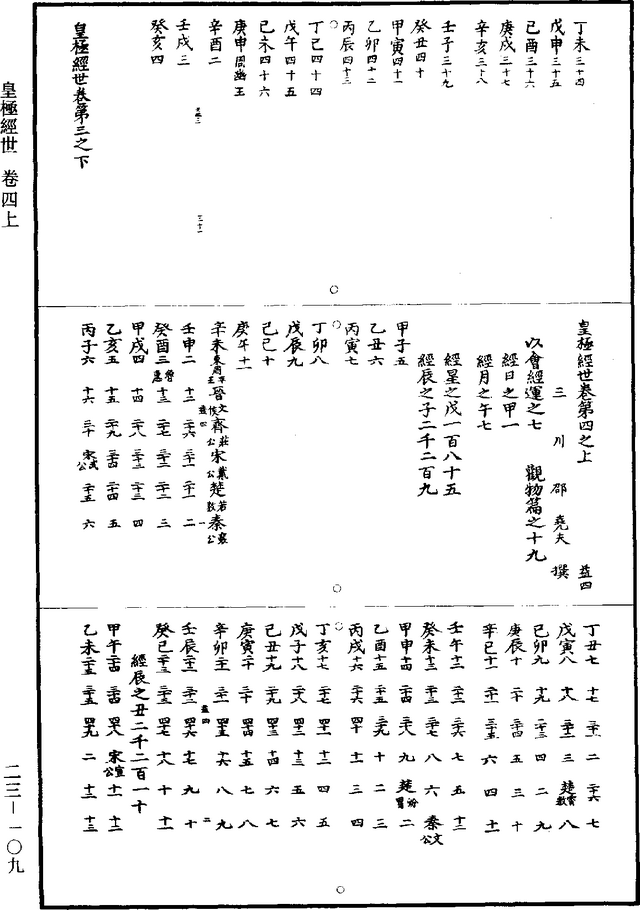 丁未三十四
戊申三十五
己酉三十六
庚戌三十七
辛亥三十八
壬子三十九
癸丑四十
甲寅四十一
乙卯四十二
丙辰四十三
○
丁巳四十四
戊午四十五
己未四十六
庚申周幽王
辛酉二
壬戌三
癸亥四
三十一
皇極經世卷第三之下
○
皇極經世卷第四之上 益四
三川邵堯夫撰
以會經運之七 觀物篇之十九
經日之甲一
經月之午七
經星之戊一百八十五
經辰之子二千二百九
甲子五
乙丑六
丙寅七
○
丁卯八
戊辰九
己巳十
庚午十一
辛未東周平王 晉文侯 齊莊公 宋戴公 楚若敖 秦襄公
益四 一
壬申二 十二 二十六 三十一 二十一 二
癸酉三 魯惠 十三 二十七 三十二 二十二 三
甲戌四 十四 二十八 三十三 二十三 四
乙亥五 十五 二十九 三十四 二十四 五
丙子六 十六 三十 宋武公 二十五 六
○
丁丑七 十七 三十一 二 二十六 七
戊寅八 十八 三十二 三 楚霄敖 八
己卯九 十九 三十三 四 二 九
庚辰十 二十 三十四 五 三 十
辛巳十一 二十一 三十五 六 四 十一
壬午十二 二十二 三十六 七 五 十二
癸未十三 二十三 三十七 八 六 秦文公
甲申十四 二十四 三十八 九 楚蚡冒 二
乙酉十五 二十五 三十九 十 二 三
丙戌十六 二十六 四十 十一 三 四
○
丁亥十七 二十七 四十一 十二 四 五
戊子十八 二十八 四十二 十三 五 六
己丑十九 二十九 四十三 十四 六 七
庚寅二十 三十 四十四 十五 七 八
辛卯二十一 三十一 四十五 十六 八 九
益四 二
壬辰二十二 三十二 四十六 十七 九 十
癸巳二十三 三十三 四十七 十八 十 十一
經辰之丑二千二百一十
甲午二十四 三十四 四十八 宋宣公 十一 十二
乙未二十五 三十五 四十九 二 十二 十三
○
皇極經世 卷四上
二三—一〇九